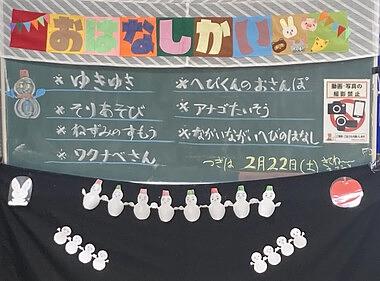 おはなしかい
※ ゆきゆき
※ そりあそび
※ ねずみのすもう
※ ワクナベさん
※ へびくんのおさんぽ
※ アナゴたいそう
※ ながいながいへびのはなし
つぎは 2月22日(土)
動画・写真の
撮影禁止